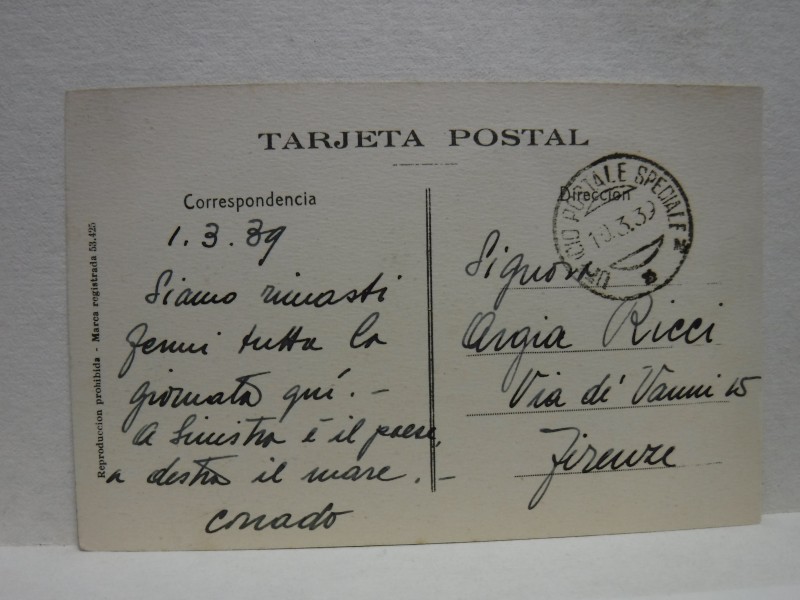 TARJETA POSTAL
Correspondencia
Dirección
UFFICIO POSTALE SPECIALE N
19.3.39
Reproduccion prohibida - Marca registrada 53.425
1.3.39
Siamo rimasti
fermi tutta la
giornata qui. -
A Sinistra è il paese,
a destra il mare. -
Corrado
Signora
Argia Ricci
Via de' Vanni 15
Firenze